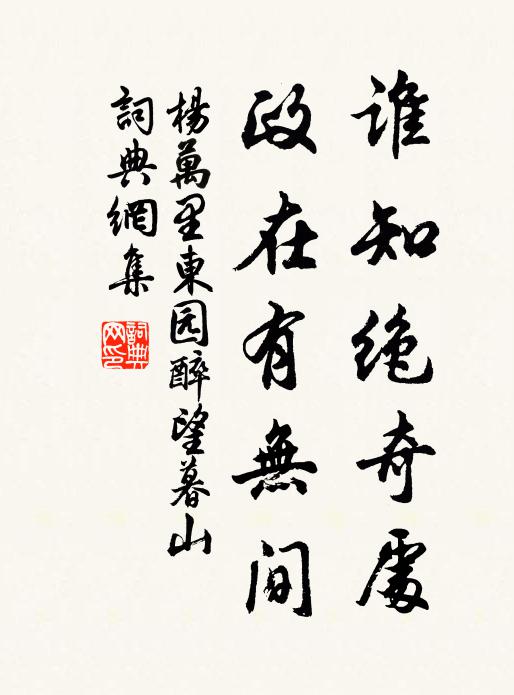 谁知绝奇處
政在有無间
楊萬里東园醉望暮山
詞典網集
詞典网印